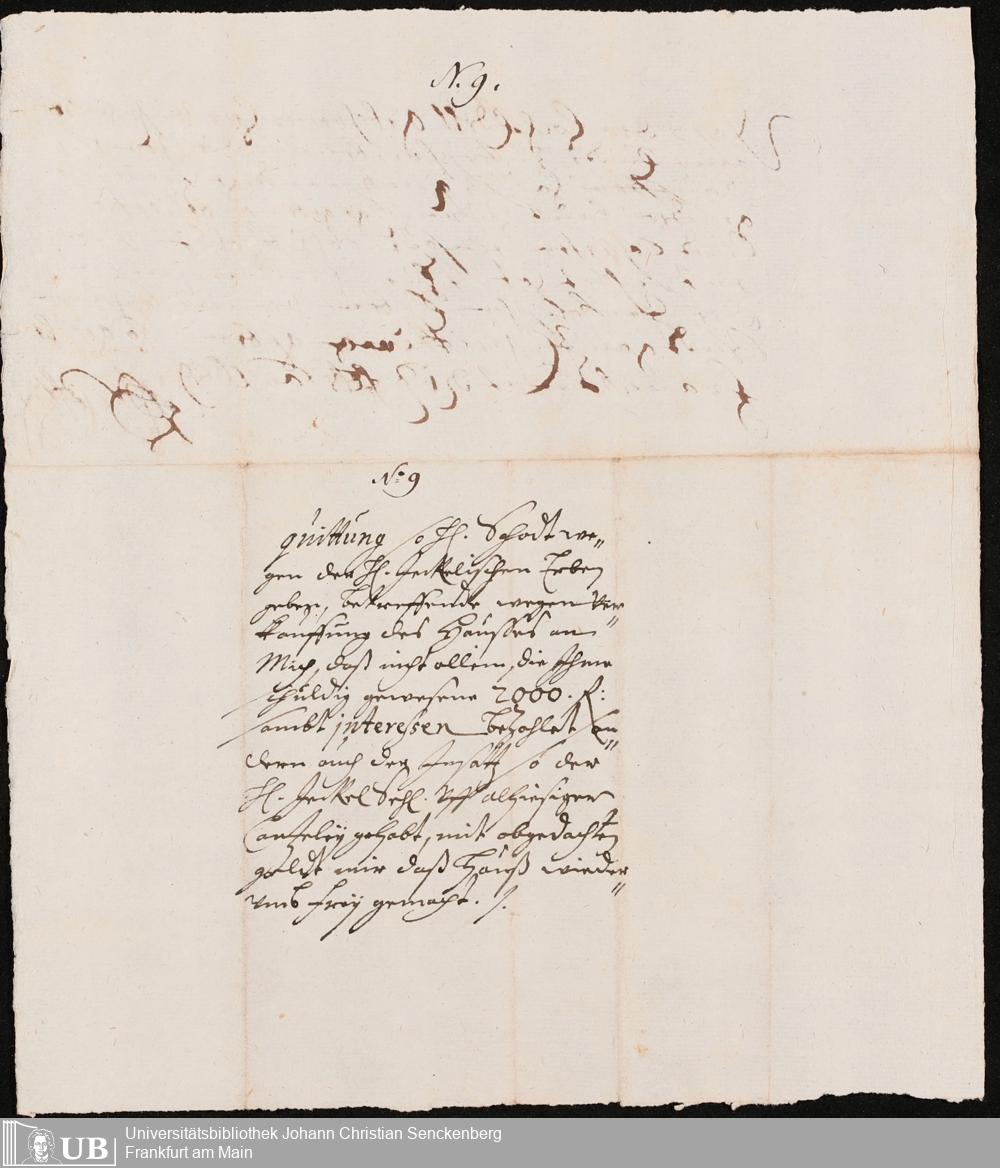 N. 9.
No: 9
quittung so H. Schodt we„
gen der H. Jeckelischen Erben
geben, betreffende wegen ver„
kauffung des Hausses an
Mich, daß nicht allein, die Ihme
schuldig gewesene 2000. f:
sambt interessen bezahlet son„
dern auch der Insatz so der
H. Jeckel Sehl. vff alhiesiger
Cantzeley gehabt, mit obgedachten
geldt mir daß Hauß wieder„
umb frey gemacht. /.
Universitätsbibliothek Johann Christian Senckenberg
UB Frankfurt am Main